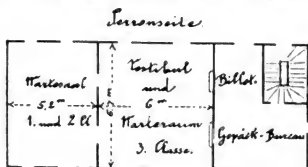 Perronseite.
Wartesaal
5,2 m
1. und 2. Cl.
Vestibul
und
6 m
Warteraum
3. Classe.
Billet-
Gepäck-Bureau